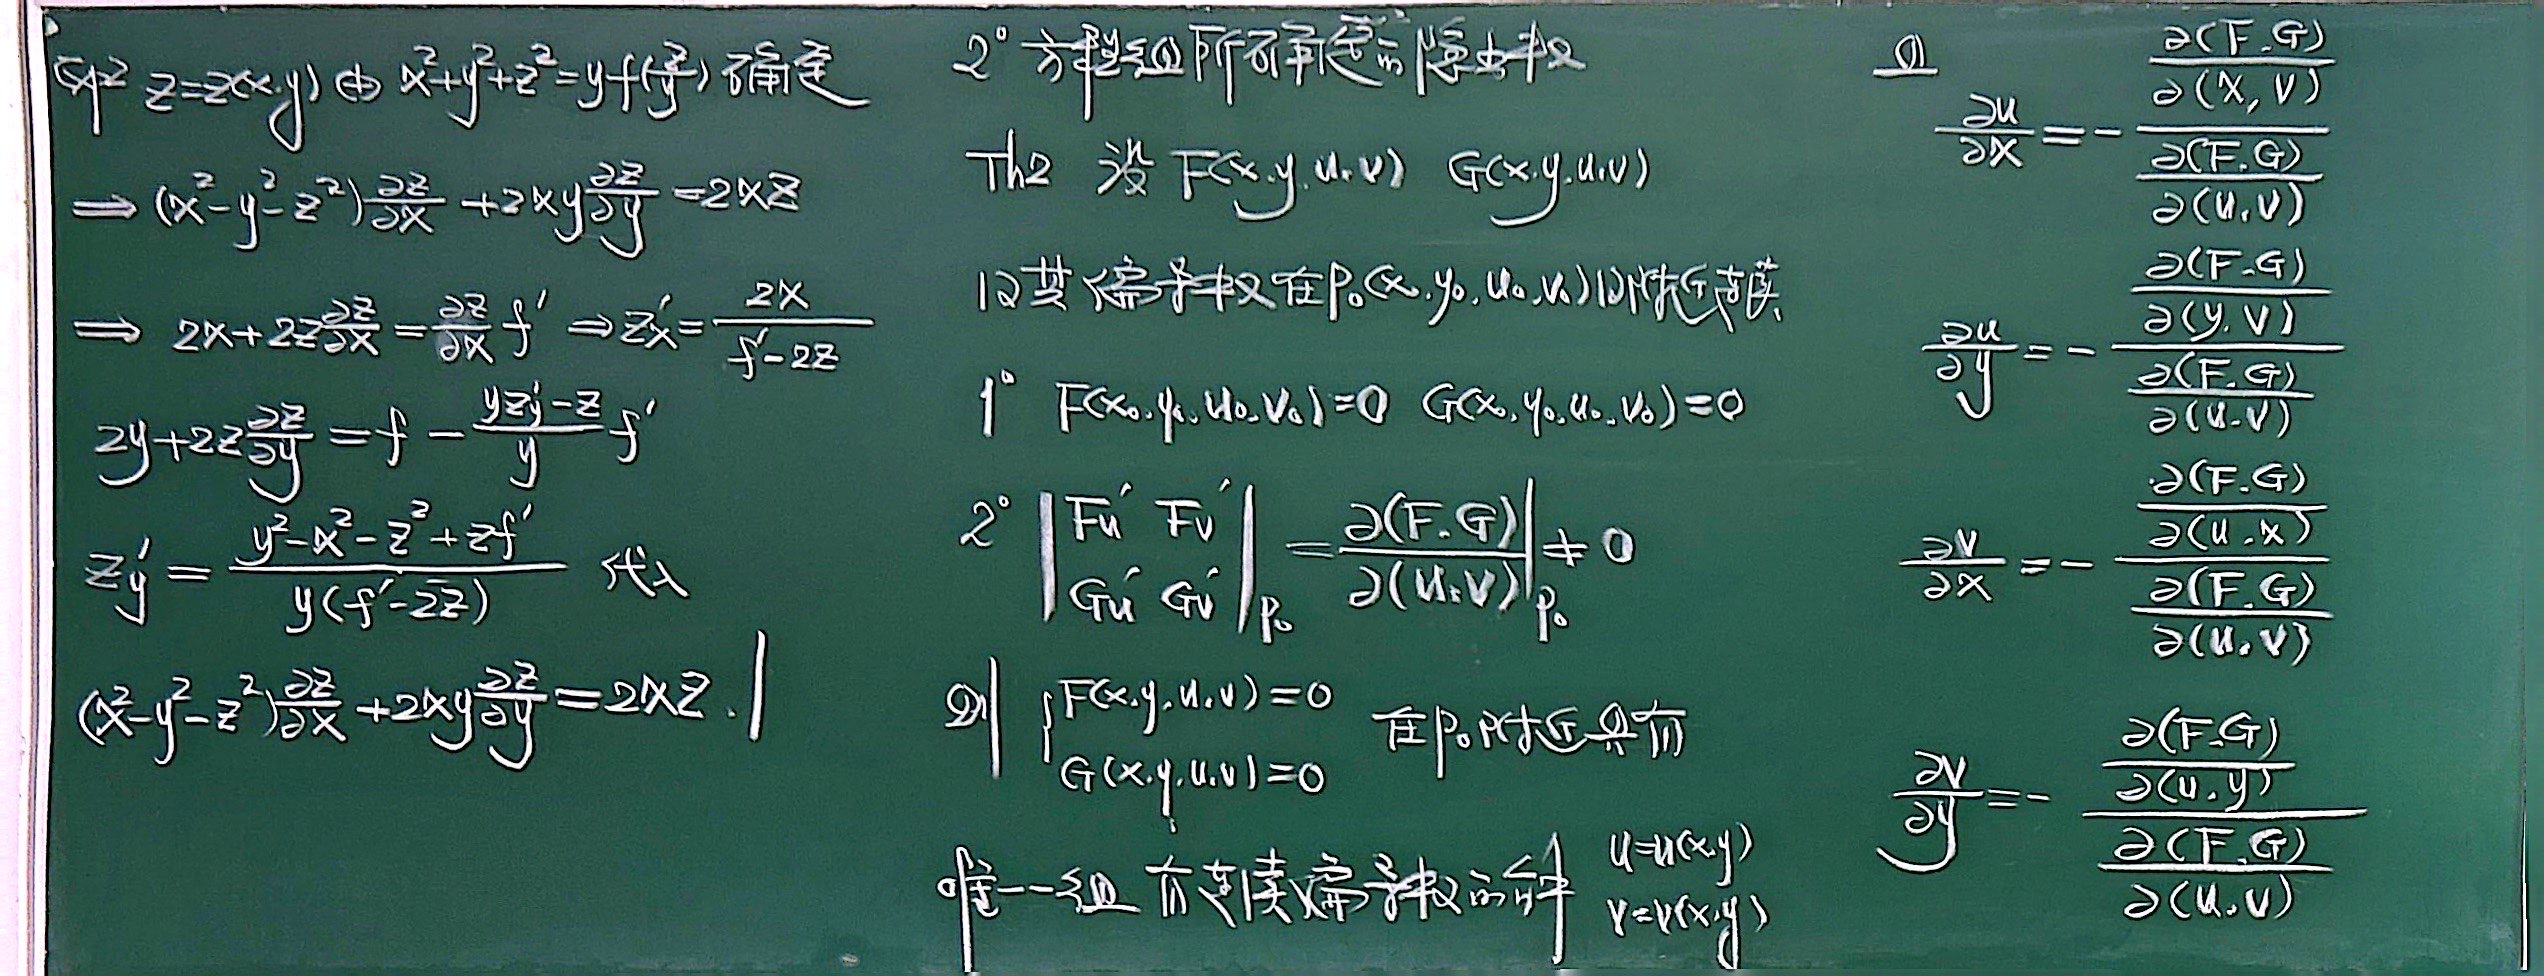 例2 z=z(x.y) 由 x²+y²+z²=yf(z/y) 确定
⇒ (x²-y²-z²)∂z/∂x +2xy∂z/∂y=2xz
⇒ 2x+2z∂z/∂x=∂z/∂x f′ ⇒z′x=2x/(f′-2z)
2y+2z∂z/∂y=f-(yz′y-z)/y f′
z′y=(y²-x²-z²+zf′)/(y(f′-2z)) 代入
(x²-y²-z²)∂z/∂x+2xy∂z/∂y=2xz.|
2° 方程组所确定的隐函数
Th2 设 F(x.y.u.v) G(x.y.u.v)
以其偏导数在P₀(x₀.y₀.u₀.v₀)的附近连续
1° F(x₀.y₀.u₀.v₀)=0 G(x₀.y₀.u₀.v₀)=0
2° |F′u F′v
G′u G′v|P₀ =∂(F.G)/∂(u.v)|P₀≠0
则 {F(x.y.u.v)=0
G(x.y.u.v)=0 在P₀附近具有
唯一一组有连续偏导数的解 u=u(x.y)
v=v(x.y)
且
∂u/∂x=-(∂(F.G)/∂(x,v))/(∂(F.G)/∂(u.v))
∂u/∂y=-(∂(F.G)/∂(y.v))/(∂(F.G)/∂(u.v))
∂v/∂x=-(∂(F.G)/∂(u.x))/(∂(F.G)/∂(u.v))
∂v/∂y=-(∂(F.G)/∂(u.y))/(∂(F.G)/∂(u.v))